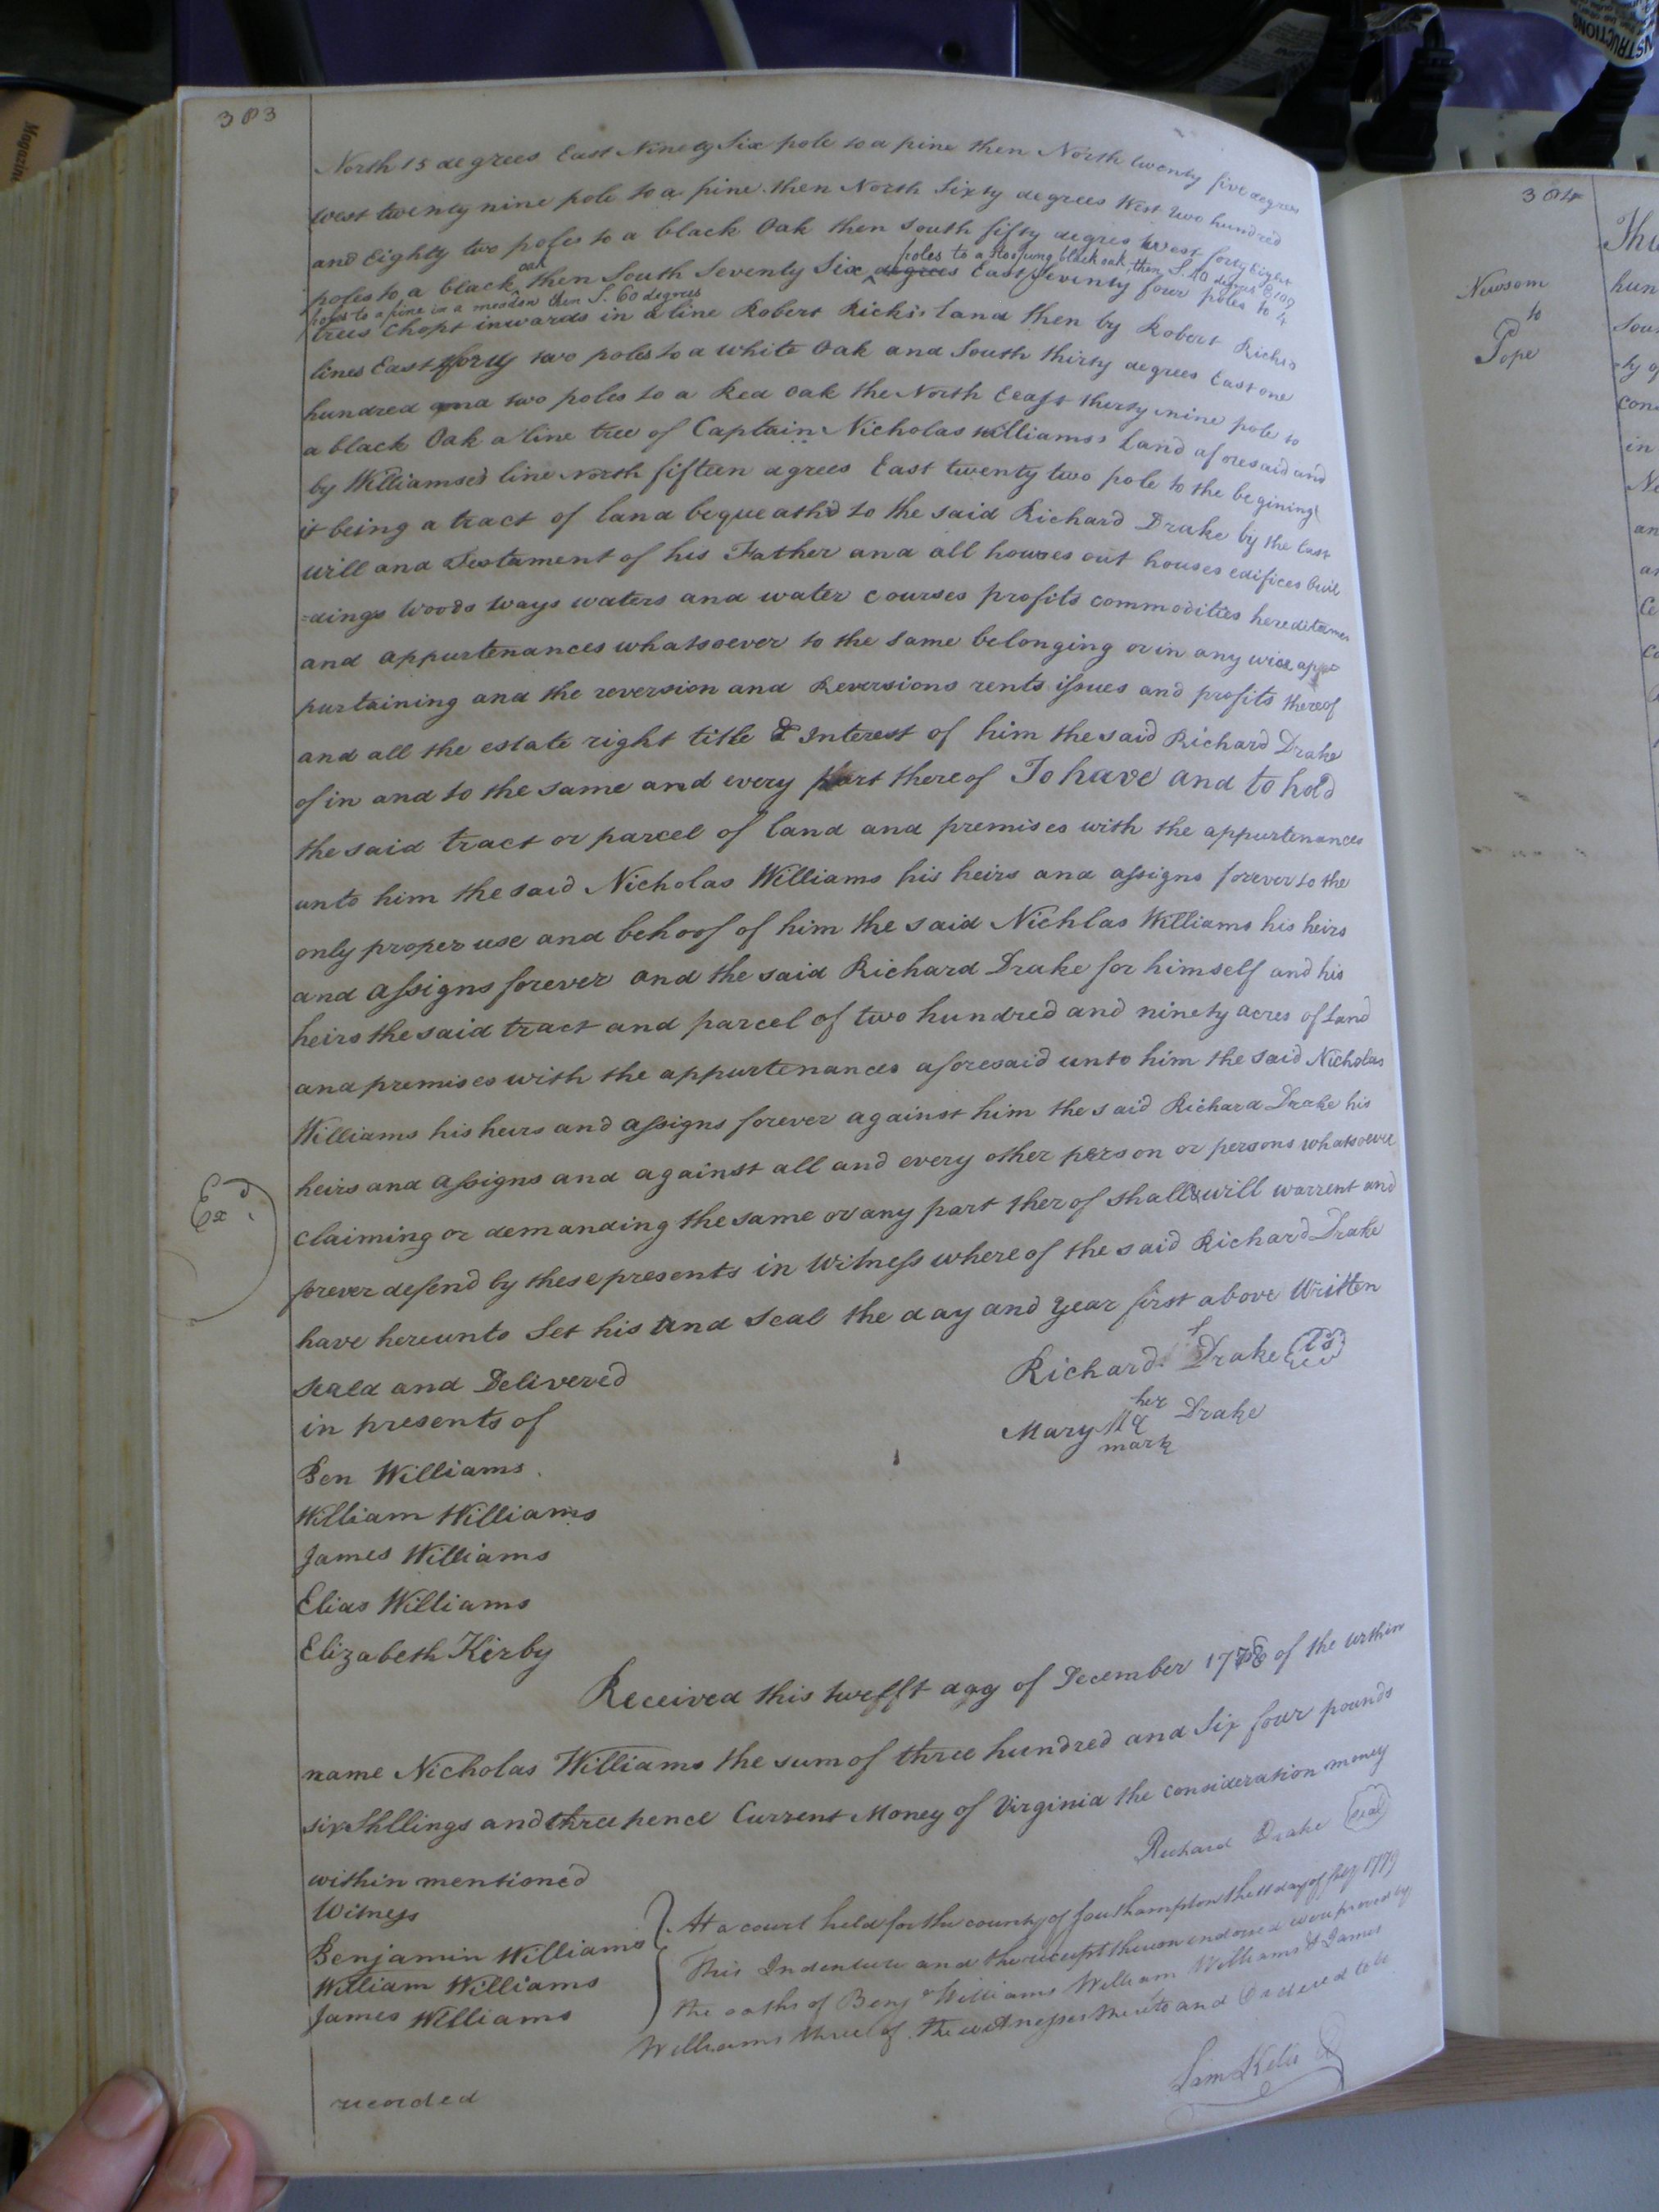 303
North 15 degrees East Ninety Six pole to a pine then North twenty five degrees
West twenty nine pole to a pine then North Sixty degrees West two hundred
and Eighty two poles to a black Oak then South fifty degres West forty Eight
poles to a Stooping black oak, then S. 40 degrees E 100
poles to a black oak then South Seventy Six degrees East Seventy four poles to 4
poles to a pine in a meadow then S. 60 degrees
trees Chopt inwards in a line Robert Ricks's Land then by Robert Ricks's
lines East forty two poles to a white Oak and South thirty degrees East one
hundred and two poles to a Red Oak the North Ceast therty nine pole to
a black Oak a line tree of Captain Nicholas Williams's Land aforesaid and
by Williamses line North fifteen agrees East twenty two pole to the begining
it being a tract of land bequeath'd to the said Richard Drake by the last
will and Testament of his Father and all houses out houses edifices buil
=dings Woods ways waters and water Courses profits commodities hereditamen
and appurtenances whatsoever to the same belonging or in any wise app
purtaining and the reversion and Reversions rents issues and profits thereof
and all the estate right title & Interest of him the said Richard Drake
of in and to the same and every part thereof To have and to hold
the said tract or parcel of land and premises with the appurtenances
unto him the said Nicholas Williams his heirs and assigns forever to the
only proper use and behoof of him the said Nichlas Williams his heirs
and assigns forever and the said Richard Drake for himself and his
heirs the said tract and parcel of two hundred and ninety acres of Land
and premises with the appurtenances aforesaid unto him the said Nicholas
Williams his heirs and assigns forever against him the said Richard Drake his
heirs and assigns and against all and every other person or persons whatsoever
Exd
claiming or demanding the same or any part therof shall & will warrent and
forever defend by these presents in Witness whereof the said Richard Drake
have hereunto Set his and Seal the day and year first above Written
Seald and Delivered
in presents of
Richard Drake (LS)
her
Mary Drake
mark
Ben Williams.
William Williams
James Williams
Elias Williams
Elizabeth Kirby
Received this twelft day of December 1778 of the within
name Nicholas Williams the sum of three hundred and Six four pounds
six Shllings and three pence Current Money of Virginia the consideration money
within mentioned
Richard Drake (seal)
Witness
Benjamin Williams
William Williams
James Williams
At a court held for the county of Southampton the day of 1779
This Indenture and the receipt thereon endorsed were proved by
the oaths of Benja Williams William Williams & James
Williams three of the witnesses thereto and Ordered to be
recorded
Sam Kello
304
Newsom
to
Pope